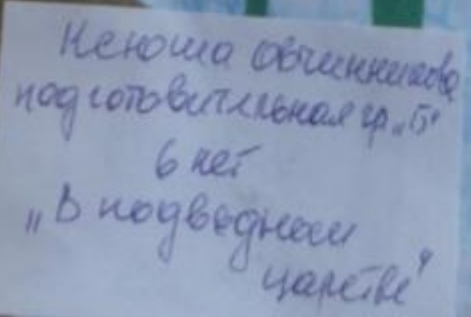 Ксюша Овчинникова
подготовительная гр. „Б"
6 лет
„В подводном
царстве"